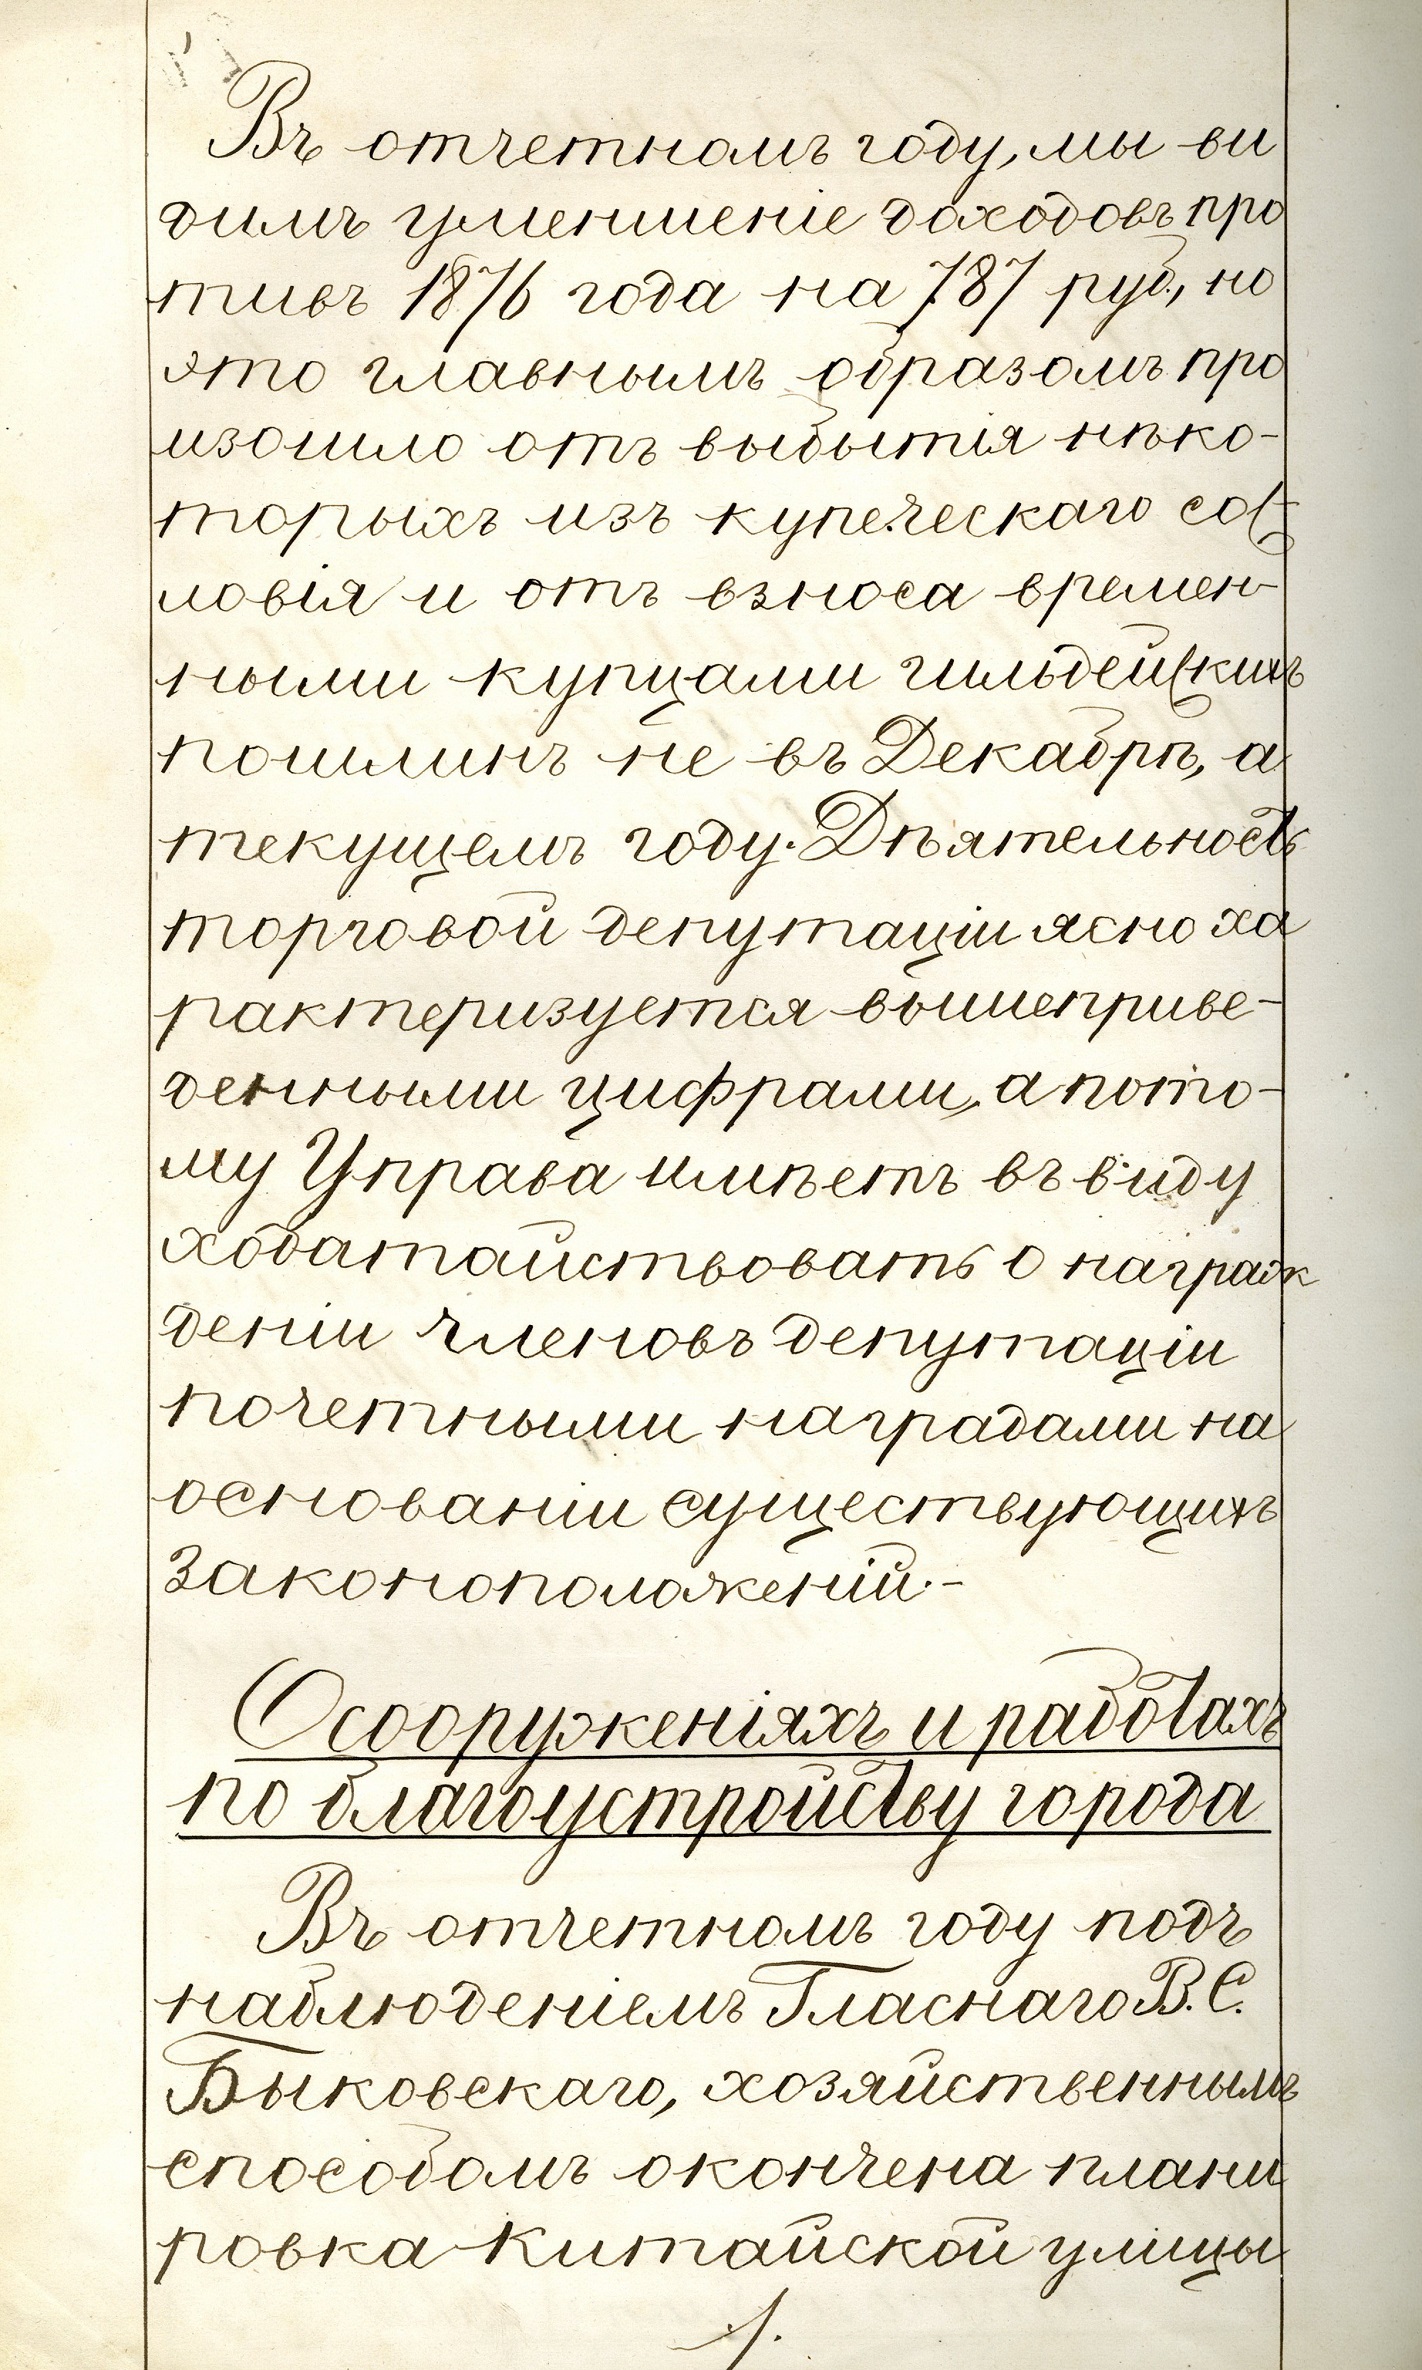 Въ отчетномъ году, мы ви
димъ уменшеніе доходовъ про
тивъ 1876 года на 787 руб., но
это главнымъ образомъ про
изошло отъ выбытія нѣко-
торыхъ изъ купеческаго сос-
ловія и отъ взноса времен-
ными купцами гильдейскихъ
пошлинъ не въ Декабрѣ, а
текущемъ году. Дѣятельность
торговой депутаціи ясно ха
рактеризуется вышеприве-
денными цифрами, а пото-
му Управа имѣетъ въ виду
ходатайствовать о награж
деніи членовъ депутаціи
почетными наградами на
основаніи существующихъ
законоположеній.-
О сооруженіяхъ и работахъ
по благоустройству города
Въ отчетномъ году подъ
наблюденіемъ Гласнаго В. С.
Быковскаго, хозяйственнымъ
способомъ окончена плани
ровка Китайской улицы